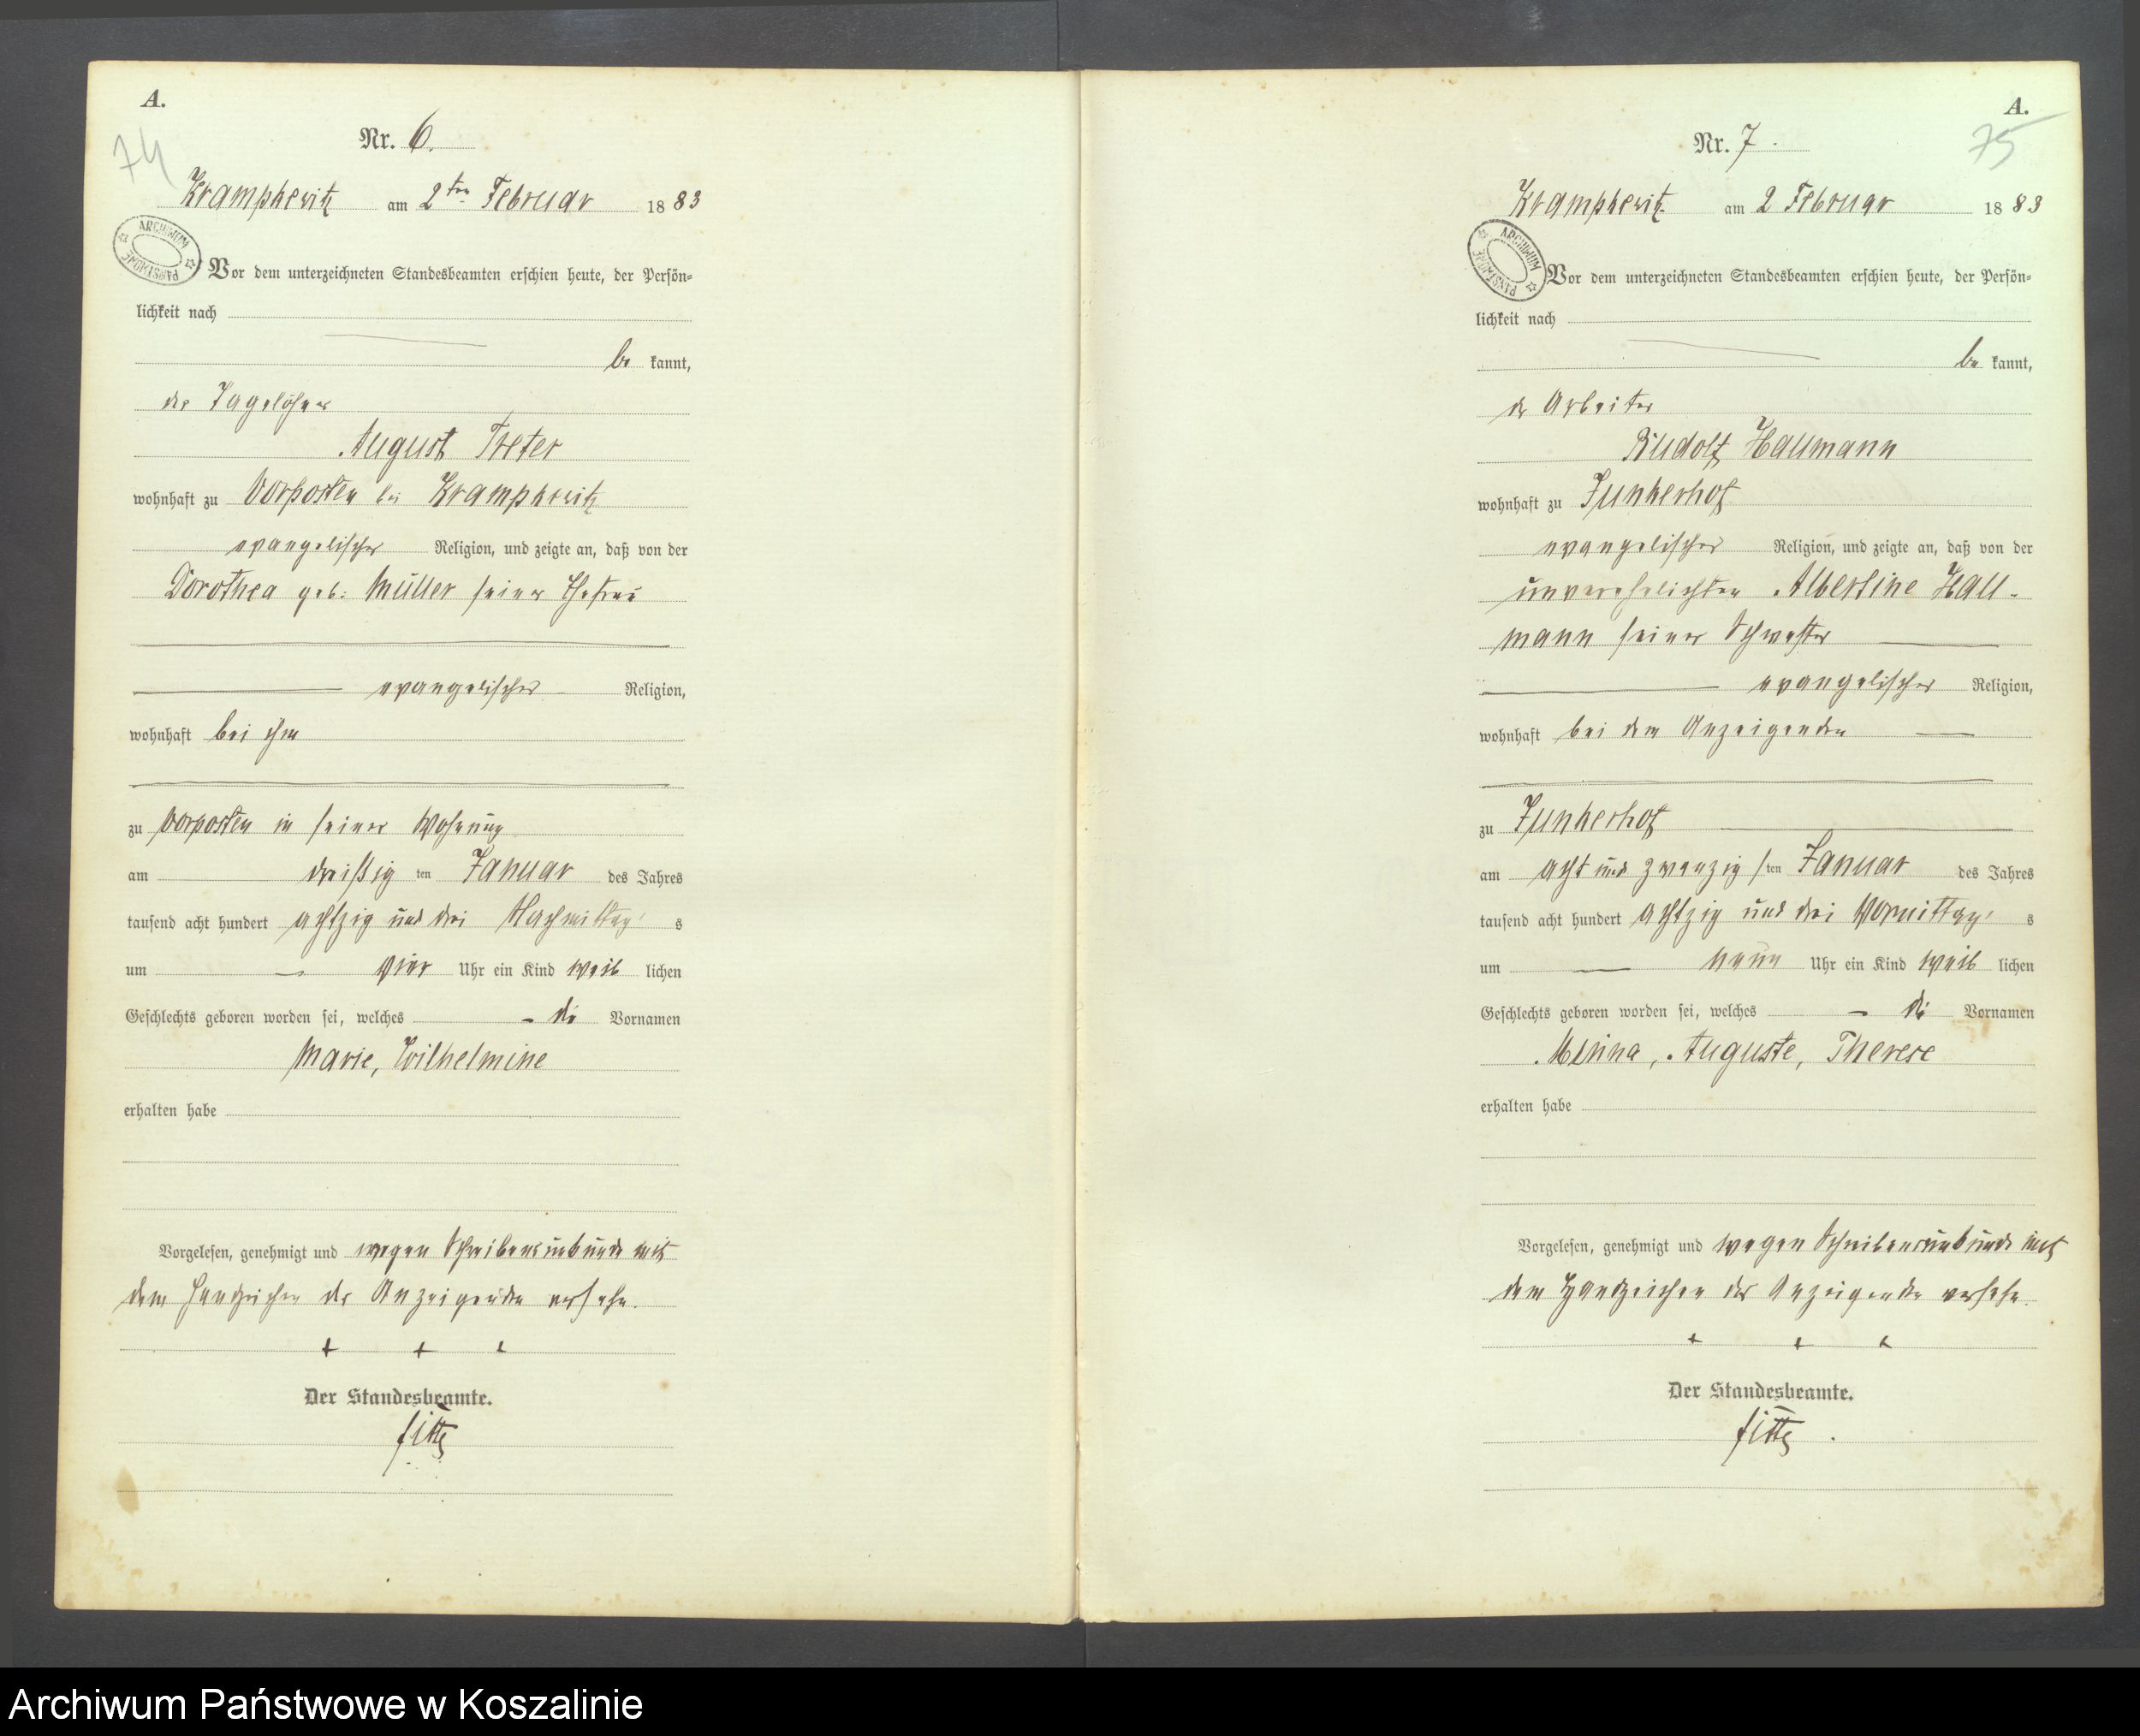 A.
74
Nr. 6.
Kramphewitz am 2ten Februar 1883
ARCHIWUM PAŃSTWOWE
Vor dem unterzeichneten Standesbeamten erschien heute, der Persön=
lichkeit nach
be kannt,
der Tagelöhner
August Treter
wohnhaft zu Vorposten bei Kramphewitz
evangelischer Religion, und zeigte an, daß von der
Dorothea geb: Müller seiner Ehefrau
evangelischer Religion,
wohnhaft bei ihm
zu Vorposten in seiner Wohnung
am dreißig ten Januar des Jahres
tausend acht hundert achtzig und drei Nachmittag s
um vier Uhr ein Kind weib lichen
Geschlechts geboren worden sei, welches die Vornamen
Marie, Wilhelmine
erhalten habe
Vorgelesen, genehmigt und wegen Schreibensunkunde mit
dem Handzeichen des Anzeigenden versehn.
+ + +
Der Standesbeamte.
A.
75
Nr. 7.
Kramphewitz am 2 Februar 1883
ARCHIWUM PAŃSTWOWE
Vor dem unterzeichneten Standesbeamten erschien heute, der Persön=
lichkeit nach
be kannt,
der Arbeiter
Rudolf Hallmann
wohnhaft zu Junkerhof
evangelischer Religion, und zeigte an, daß von der
unverehelichten Albertine Hall-
mann seiner Schwester
evangelischer Religion,
wohnhaft bei dem Anzeigenden
zu Junkerhof
am acht und zwanzig sten Januar des Jahres
tausend acht hundert achtzig und drei Vormittag s
um neun Uhr ein Kind weib lichen
Geschlechts geboren worden sei, welches die Vornamen
Minna, Auguste, Therese
erhalten habe
Vorgelesen, genehmigt und wegen Schreibensunkunde mit
dem Handzeichen des Anzeigenden versehn.
+ + +
Der Standesbeamte.
Archiwum Państwowe w Koszalinie